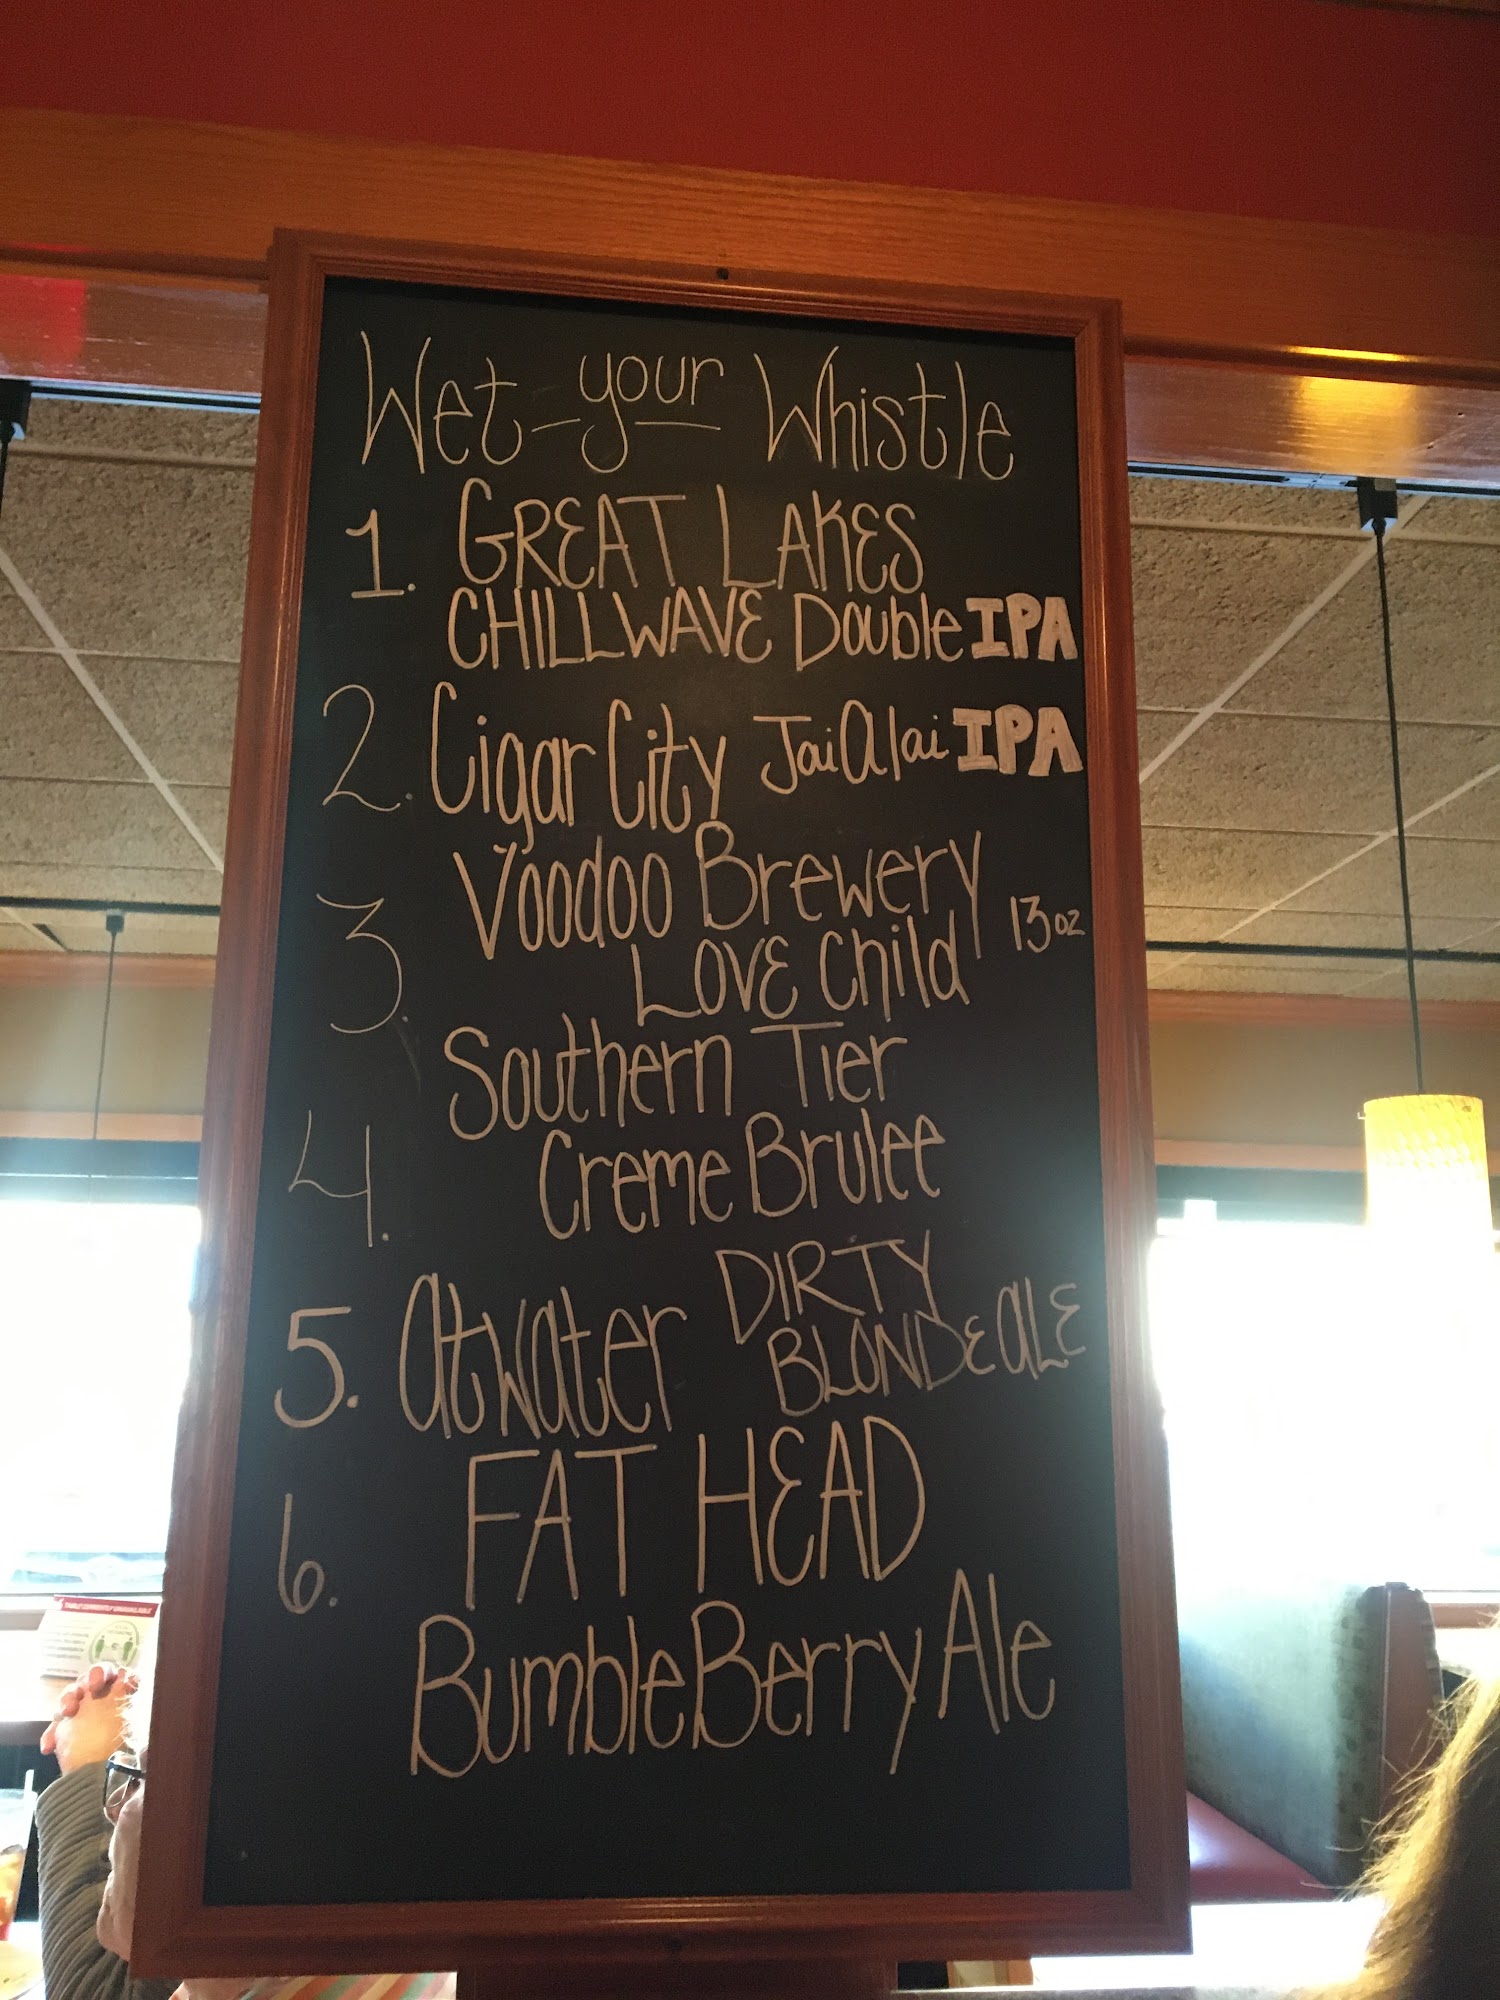 Wet your Whistle
1. GREAT LAKES
CHILLWAVE Double IPA
2. Cigar City Jai Alai IPA
3. Voodoo Brewery
LOVE Child 13 oz
4. Southern Tier
Creme Brulee
5. Atwater DIRTY
BLONDE ALE
6. FAT HEAD
BumbleBerry Ale
TABLE CURRENTLY UNAVAILABLE